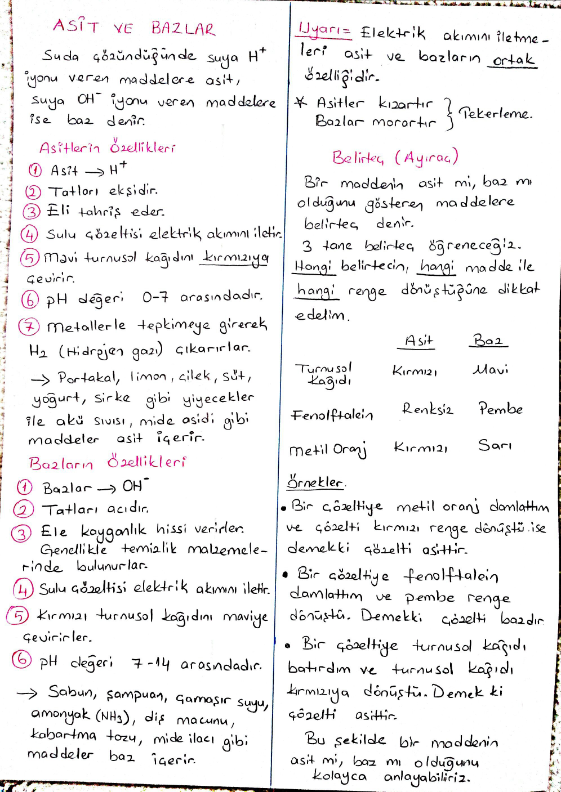 ASİT VE BAZLAR
Suda çözündüğünde suya H⁺
iyonu veren maddelere asit,
suya OH⁻ iyonu veren maddelere
ise baz denir.
Asitlerin Özellikleri
① Asit → H⁺
② Tatları ekşidir.
③ Eli tahriş eder.
④ Sulu çözeltisi elektrik akımını iletir.
⑤ Mavi turnusol kağıdını kırmızıya
çevirir.
⑥ pH değeri 0-7 arasındadır.
⑦ Metallerle tepkimeye girerek
H₂ (Hidrojen gazı) çıkarırlar.
→ Portakal, limon, çilek, süt,
yoğurt, sirke gibi yiyecekler
ile akü sıvısı, mide asidi gibi
maddeler asit içerir.
Bazların Özellikleri
① Bazlar → OH⁻
② Tatları acıdır.
③ Ele kayganlık hissi verirler.
Genellikle temizlik malzemele-
rinde bulunurlar.
④ Sulu çözeltisi elektrik akımını iletir.
⑤ Kırmızı turnusol kağıdını maviye
çevirirler.
⑥ pH değeri 7-14 arasındadır.
→ Sabun, şampuan, çamaşır suyu,
amonyak (NH₃), diş macunu,
kabartma tozu, mide ilacı gibi
maddeler baz içerir.
Uyarı= Elektrik akımını iletme-
leri asit ve bazların ortak
özelliğidir.
* Asitler kızartır } Tekerleme.
Bazlar morartır
Belirteç (Ayıraç)
Bir maddenin asit mi, baz mı
olduğunu gösteren maddelere
belirteç denir.
3 tane belirteç öğreneceğiz.
Hangi belirtecin, hangi madde ile
hangi renge dönüştüğüne dikkat
edelim.
Asit Baz
Turnusol Kağıdı Kırmızı Mavi
Fenolftalein Renksiz Pembe
Metil Oranj Kırmızı Sarı
Örnekler.
• Bir çözeltiye metil oranj damlattım
ve çözelti kırmızı renge dönüştü ise
demekki çözelti asittir.
• Bir çözeltiye fenolftalein
damlattım ve pembe renge
dönüştü. Demekki çözelti bazdır.
• Bir çözeltiye turnusol kağıdı
batırdım ve turnusol kağıdı
kırmızıya dönüştü. Demek ki
çözelti asittir.
Bu şekilde bir maddenin
asit mi, baz mı olduğunu
kolayca anlayabiliriz.